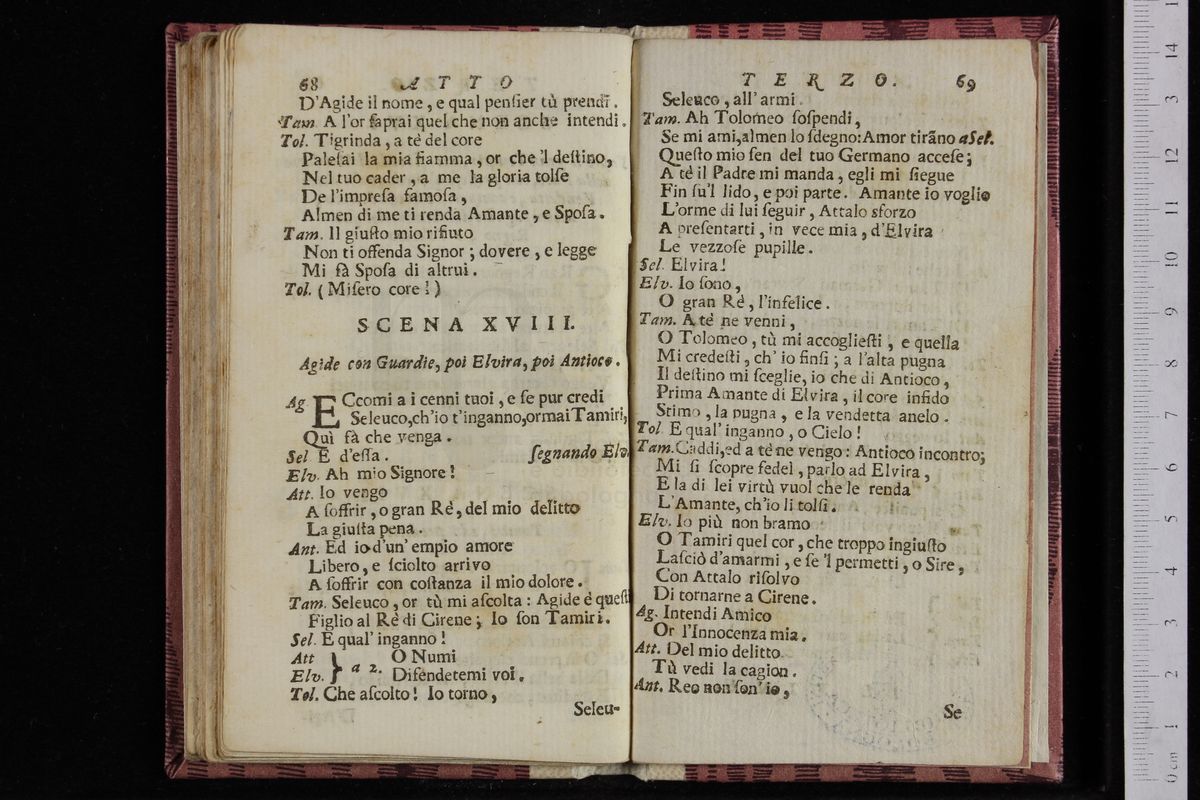 68 ATTO
D'Agide il nome, e qual penſier tù prendi.
Tam. A l'or ſaprai quel che non anche intendi.
Tol. Tigrinda, a tè del core
Paleſai la mia fiamma, or che 'l deſtino,
Nel tuo cader, a me la gloria tolſe
De l'impreſa famoſa,
Almen di me ti renda Amante, e Spoſa.
Tam. Il giuſto mio rifiuto
Non ti offenda Signor; dovere, e legge
Mi fà Spoſa di altrui.
Tol. (Miſero core!)
SCENA XVIII.
Agide con Guardie, poi Elvira, poi Antioco.
Ag ECcomi a i cenni tuoi, e ſe pur credi
Seleuco, ch'io t'inganno, ormai Tamiri,
Quì fà che venga.
Sel E d'eſſa. ſegnando Elv.
Elv. Ah mio Signore!
Att. Io vengo
A ſoffrir, o gran Rè, del mio delitto
La giuſta pena.
Ant. Ed io d'un' empio amore
Libero, e ſciolto arrivo
A ſoffrir con coſtanza il mio dolore.
Tam. Seleuco, or tù mi aſcolta: Agide è queſti
Figlio al Rè di Cirene; Io ſon Tamiri.
Sel. E qual' inganno!
Att } a 2. O Numi
Elv. } Difendetemi voi.
Tol. Che aſcolto! Io torno,
Seleu-
TERZO. 69
Seleuco, all' armi.
Tam. Ah Tolomeo ſoſpendi,
Se mi ami, almen lo ſdegno: Amor tirãno a Sel.
Queſto mio ſen del tuo Germano acceſe;
A tè il Padre mi manda, egli mi ſiegue
Fin ſu'l lido, e poi parte. Amante io voglio
L'orme di lui ſeguir, Attalo sforzo
A preſentarti, in vece mia, d'Elvira
Le vezzoſe pupille.
Sel. Elvira!
Elv. Io ſono,
O gran Rè, l'infelice.
Tam. A tè ne venni,
O Tolomeo, tù mi accoglieſti, e quella
Mi credeſti, ch' io finſi; a l'alta pugna
Il deſtino mi ſceglie, io che di Antioco,
Prima Amante di Elvira, il core infido
Stimo, la pugna, e la vendetta anelo.
Tol E qual' inganno, o Cielo!
Tam. Caddi, ed a tè ne vengo: Antioco incontro;
Mi ſi ſcopre fedel, parlo ad Elvira,
E la di lei virtù vuol che le renda
L'Amante, ch'io li tolſi.
Elv. Io più non bramo
O Tamiri quel cor, che troppo ingiuſto
Laſciò d'amarmi, e ſe 'l permetti, o Sire,
Con Attalo riſolvo
Di tornarne a Cirene.
Ag. Intendi Amico
Or l'Innocenza mia.
Att. Del mio delitto
Tù vedi la cagion.
Ant. Reo non ſon' io,
Se